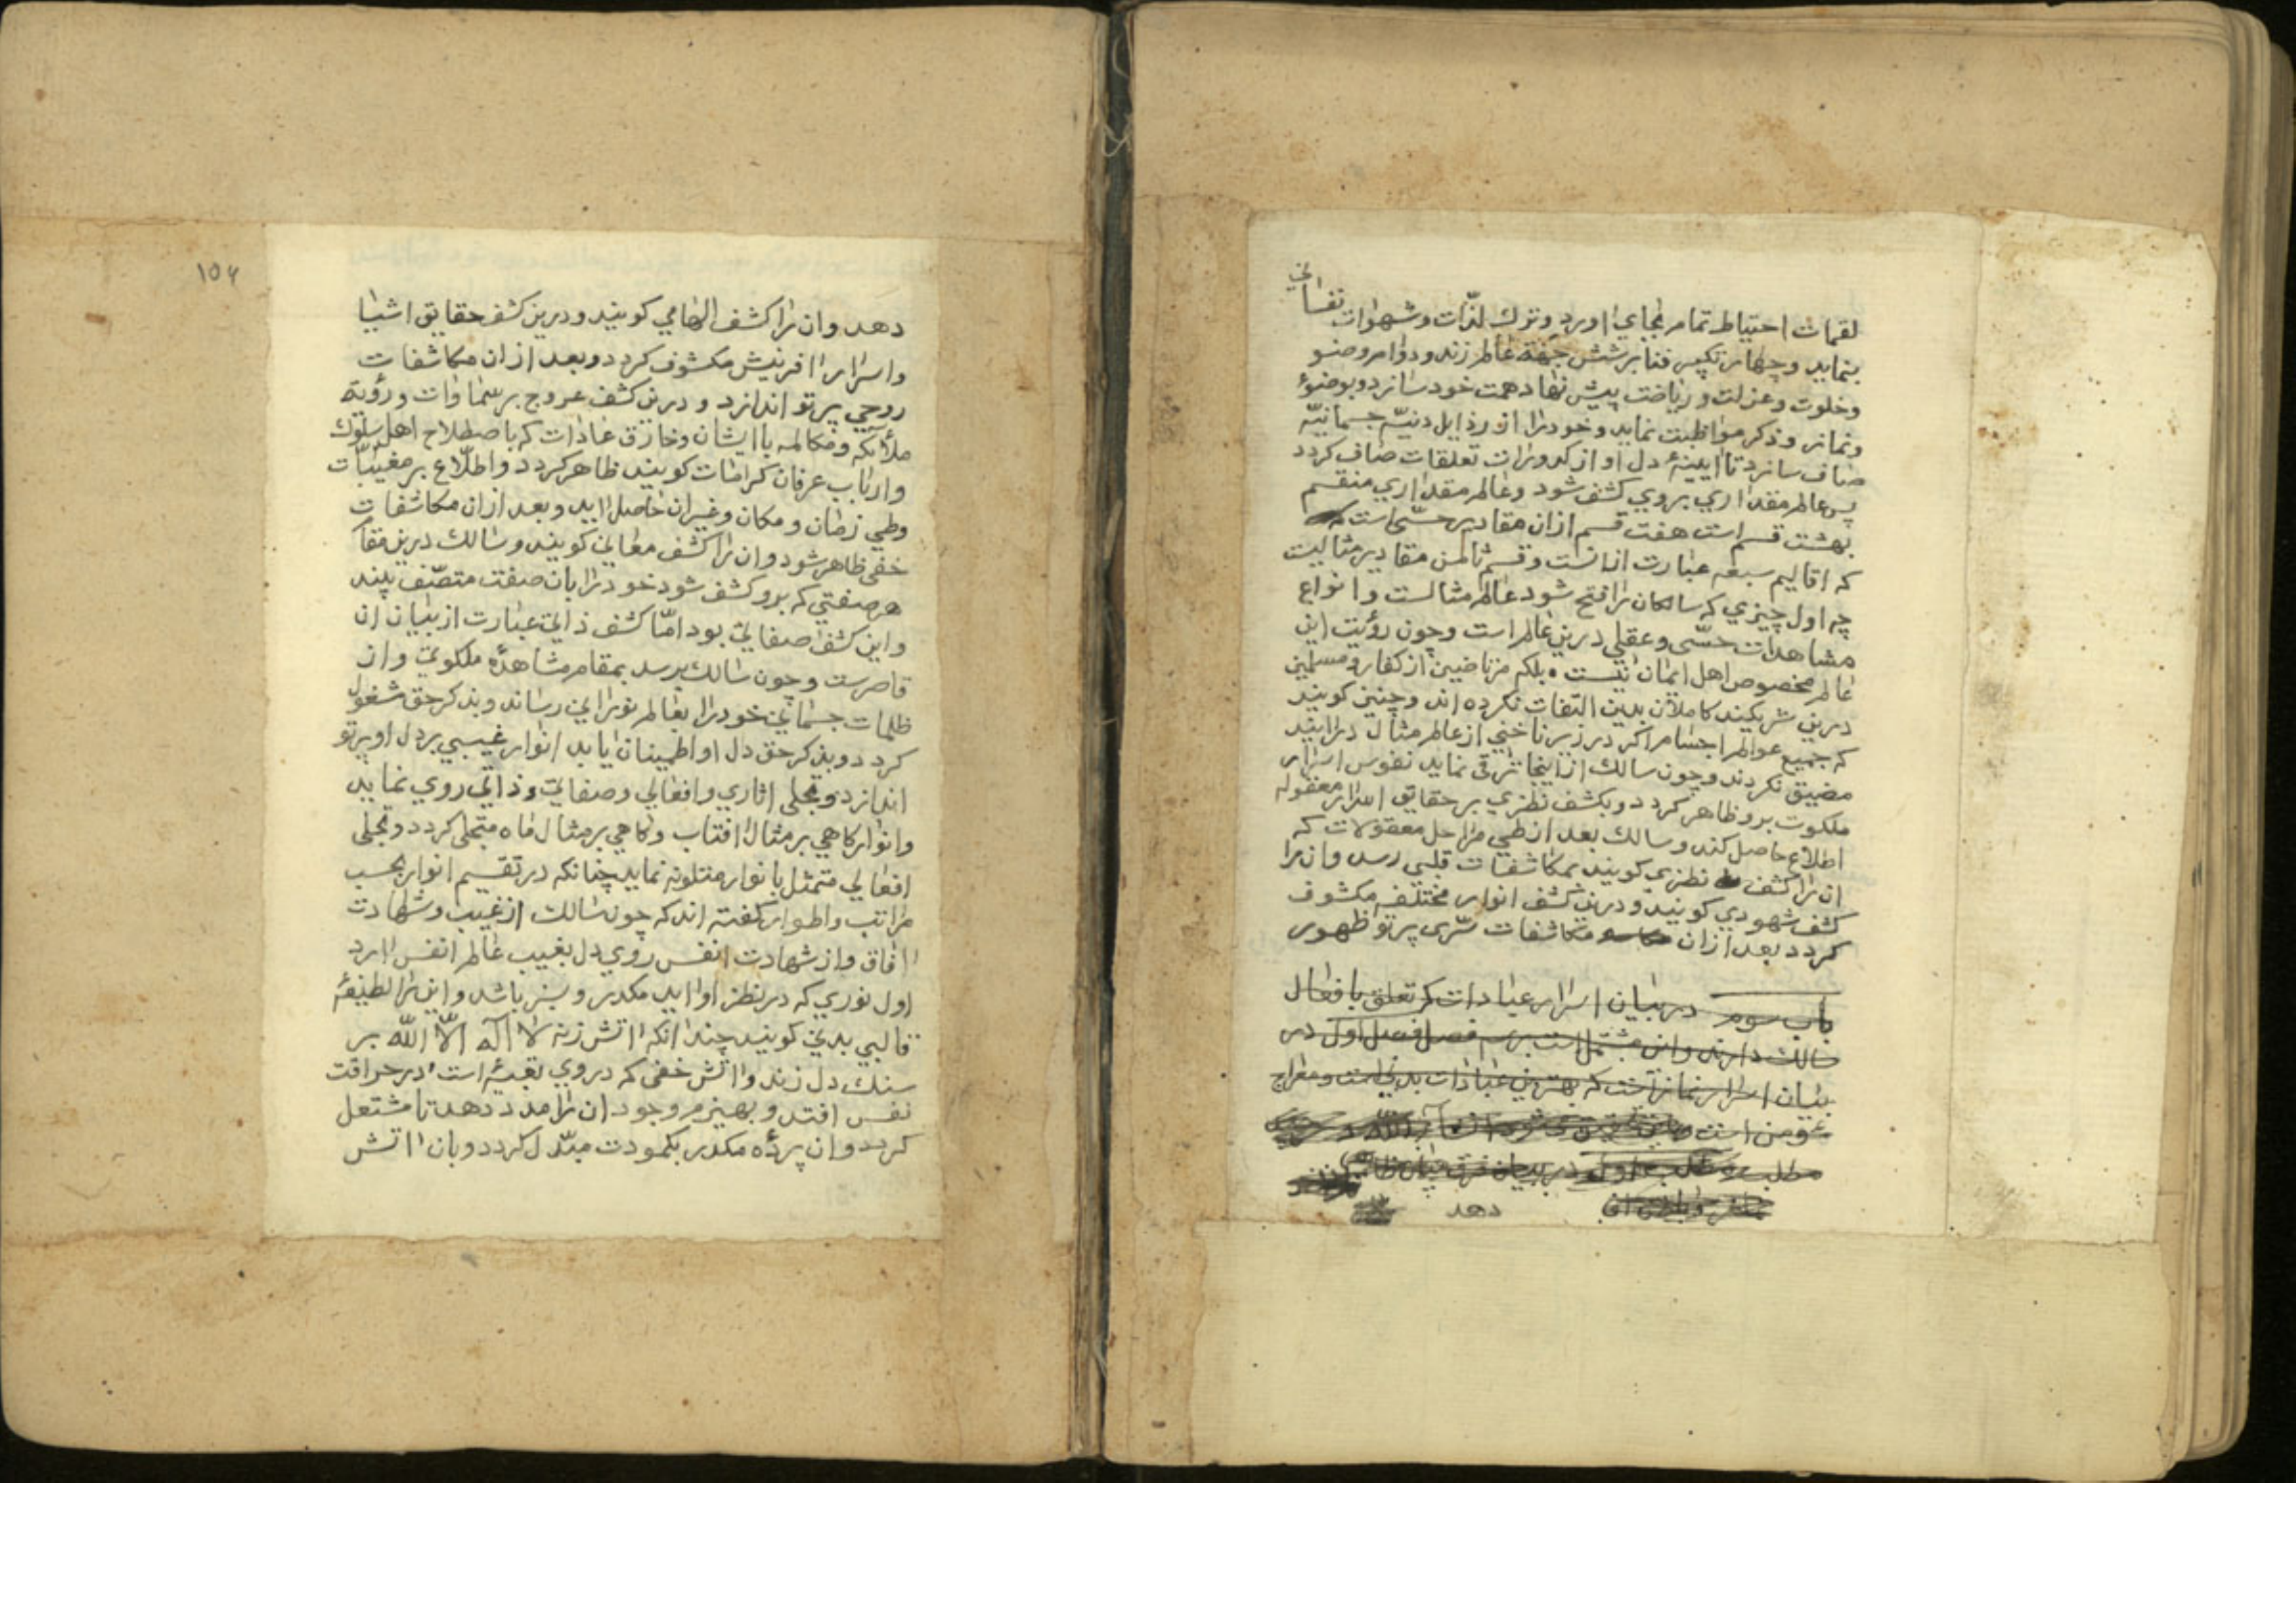 لقمات احتیاط تمام بجای اورد و ترك لذّات و شهوات نفسانی
بنماید و چهار تکبیر فنا بر شش جهة عالم زند و دوام وضو
و خلوت و عزلت و ریاضت پیش نهاد همت خود سازد و بوضوء
و نماز و ذکر مواظبت نماید و خود را از رذایل دنیّه جسمانیّه
صاف سازد تا ایینهٔ دل او از کدورات تعلقات صاف کردد
پس عالم مقداری بروی کشف شود و عالم مقداری منقسم
بهشت قسم است هفت قسم از ان مقادیر حسّی است
که اقالیم سبعه عبارت از انست و قسم ثامن مقادیر مثالیست
چه اول چیزی که سالکان را فتح شود عالم مثالست و انواع
مشاهدات حسّی و عقلی درین عالم است و چون رؤیت این
عالم مخصوص اهل ایمان نیست بلکه مرتاضین از کفار و مسلمین
درین شریکند کاملان بدین التفات نکرده اند و چنین کویند
که جمیع عوالم اجسام را کر در زیر ناخنی از عالم مثال درایند
مضیق نکردند و چون سالك از اینجا ترقی نماید نفوس اسرار
ملکوت برو ظاهر کردد و بکشف نظری بر حقایق اسرار معقوله
اطلاع حاصل کند و سالك بعد از طی مراحل معقولات که
ان را کشف نظری کویند بمکاشفات قلبی رسد و ان را
کشف شهودی کویند و درین کشف انوار مختلفه مکشوف
کردد بعد از ان مکاشفات سّری پرتو ظهور
باب سوم در بیان اسرار عبادات که تعلق با فعال
سالك دارند و این مشتمل است بر سه فصل فصل اول در
بیان اسرار نماز است که بهترین عبادات بدنی است و معراج
مؤمن است
مطلب اول در بیان فرق میان
دهد
١٥٤
دهد و ان را کشف الهامی کویند و درین کشف حقایق اشیا
و اسرار افرینش مکشوف کردد و بعد از ان مکاشفات
روحی پرتو اندازد و درین کشف عروج بر سماوات و رؤیة
ملآئکه و مکالمه با ایشان و خارق عادات که باصطلاح اهل سلوك
و ارباب عرفان کرامات کویند ظاهر کردد و اطلّاع بر مغیبّات
و طی زمان و مکان و غیر ان حاصل اید و بعد از ان مکاشفات
خفی ظاهر شود و ان را کشف معانی کویند و سالك درین مقام
هر صفتی که برو کشف شود خود را بان صفت متصّف بیند
و این کشف صفاتی بود امّا کشف ذاتی عبارت از بیان ان
قاصرست و چون سالك برسد بمقام مشاهدهٔ ملکوتی و از
ظلمات جسمانی خود را بعالم نورانی رساند و بذکر حق مشغول
کردد و بذکر حق دل او اطمینان یابد انوار غیبی بر دل او پرتو
اندازد و تجلی اثاری و افعالی و صفاتی و ذاتی روی نماید
و انوار کاهی بر مثال افتاب و کاهی بر مثال ماه متجلی کردد و تجلی
افعالی متمثل بانوار متلونه نماید چنانکه در تقسیم انوار بحسب
مراتب و اطوار کفته اند که چون سالك از غیب و شهادت
افاق و از شهادت انفس روی دل بغیب عالم انفس ارد
اول نوری که در نظر او اید مکدر و سبز باشد و این را لطیفهٔ
قالبی بدنی کویند چندانکه اتش زنه لا اله الّا اللّه بر
سنك دل زند و اتش خفی که در وی تعبیهٔ است در حراقت
نفس افتد و بهیزم وجود ان را مدد دهد تا مشتعل
کردد و ان پردهٔ مکدر بکمودت مبدّل کردد و بان اتش